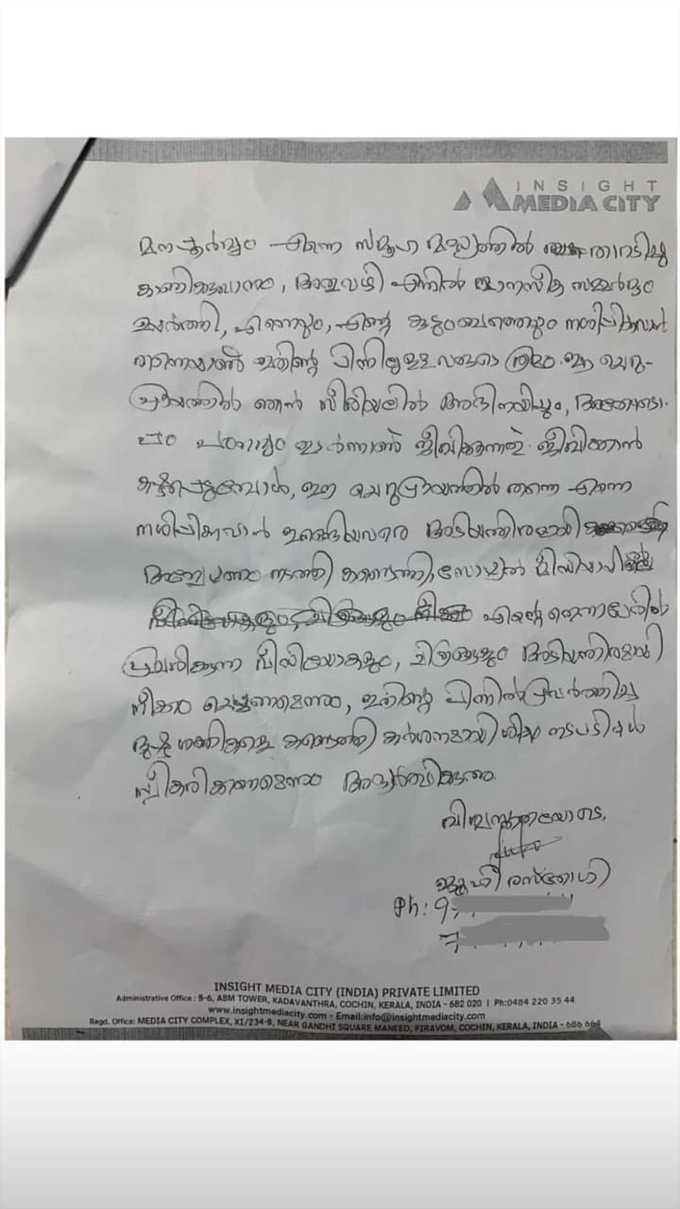 INSIGHT
MEDIA CITY
മനപൂർവ്വം എന്നെ സമൂഹ മധ്യത്തിൽ താറടിച്ചു
കാണിക്കുവാനും, അതുവഴി എന്നിൽ മാനസിക സമ്മർദ്ദം
ചെലുത്തി, എന്നെയും, എന്റെ കുടുംബത്തെയും നശിപ്പിക്കുവാൻ
തന്നെയാണ് ഇതിന്റെ പിന്നിലുള്ളവരുടെ ശ്രമം. ഈ ചെറു-
പ്രായത്തിൽ ഞാൻ സീരിയലിൽ അഭിനയിച്ചും, അതോടൊ-
പ്പം പഠനവും തുടർന്നാണ് ജീവിക്കുന്നത്. ജീവിക്കാൻ
കഷ്ടപ്പെടുമ്പോൾ, ഈ ചെറുപ്രായത്തിൽ തന്നെ എന്നെ
നശിപ്പിക്കുവാൻ ഇറങ്ങിയവരെ അടിയന്തിരമായി
അന്വേഷണം നടത്തി കണ്ടെത്തി, സോഷ്യൽ മീഡിയാപിൽ
എന്റെ പേരിൽ
പ്രചരിക്കുന്ന വീഡിയോകളും, ചിത്രങ്ങളും അടിയന്തിരമായി
നീക്കം ചെയ്യണമെന്നും, ഇതിന്റെ പിന്നിൽ പ്രവർത്തിച്ച
ദുഷ്ടശക്തികളെ കണ്ടെത്തി കർശനമായി ശിക്ഷാ നടപടികൾ
സ്വീകരിക്കണമെന്നും അഭ്യർത്ഥിക്കുന്നു.
വിശ്വസ്തതയോടെ,
ജൂഹി റസ്തോഗി
Ph: 9
7
INSIGHT MEDIA CITY (INDIA) PRIVATE LIMITED
Administrative Office : B-6, ABM TOWER, KADAVANTHRA, COCHIN, KERALA, INDIA - 682 020 | Ph:0484 220 35 44
www.insightmediacity.com - Email:info@insightmediacity.com
Regd. Office: MEDIA CITY COMPLEX, XI/234-B, NEAR GANDHI SQUARE MANEED, PIRAVOM, COCHIN, KERALA, INDIA - 686 664